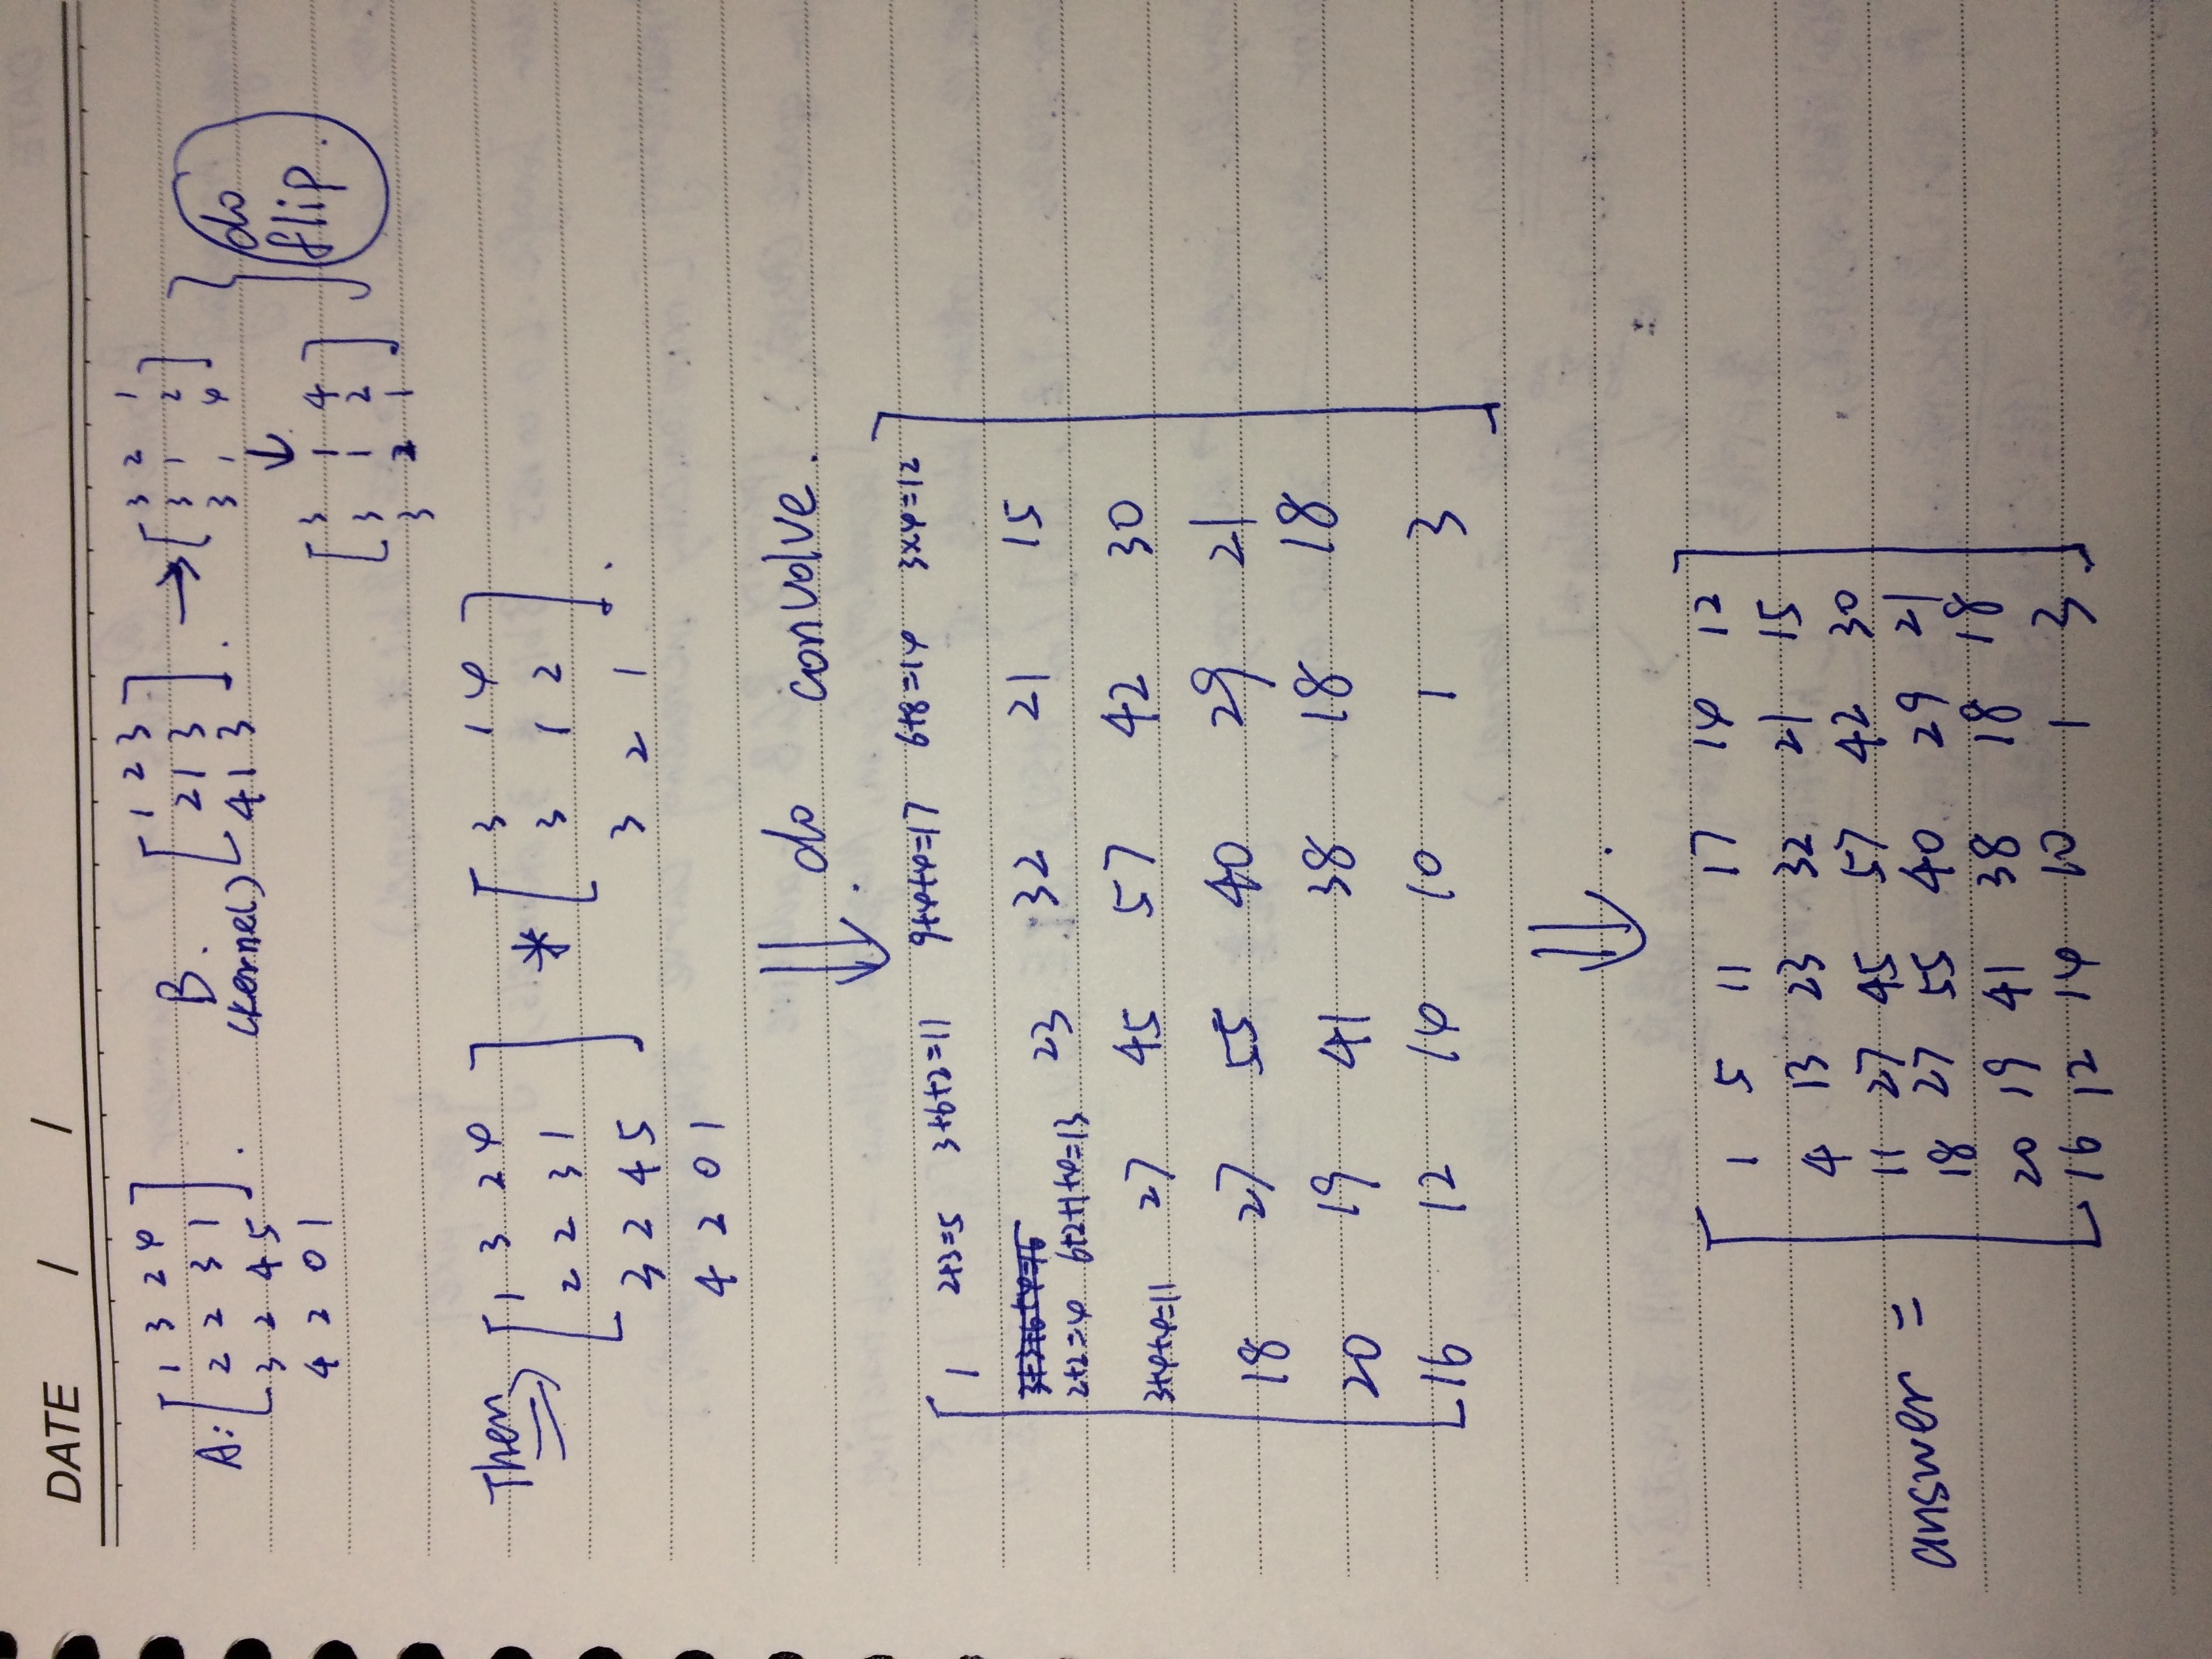 DATE / /
A: [ 1 3 2 4
2 2 3 1
3 2 4 5
4 2 0 1 ] .
B. (kernel) [ 1 2 3
2 1 3
4 1 3 ] .
→ [ 3 2 1
3 1 2
3 1 4 ]
↓
[ 3 1 4
3 1 2
3 2 1 ]
} do flip.
Then ⇒ [ 1 3 2 4
2 2 3 1
3 2 4 5
4 2 0 1 ]
* [ 3 1 4
3 1 2
3 2 1 ] .
⇓ . do convolve.
[ 1 2+3=5 3+6+2=11 9+4+4=17 6+8=14 3×4=12
3+3+6+4=16
2+2=4 6+2+1+4=13 23 32 21 15
3+4+4=11 27 45 57 42 30
18 27 55 40 29 21
20 19 41 38 18 18
16 12 14 10 1 3 ]
⇓ .
answer = [ 1 5 11 17 14 12
4 13 23 32 21 15
11 27 45 57 42 30
18 27 55 40 29 21
20 19 41 38 18 18
16 12 14 10 1 3 ]